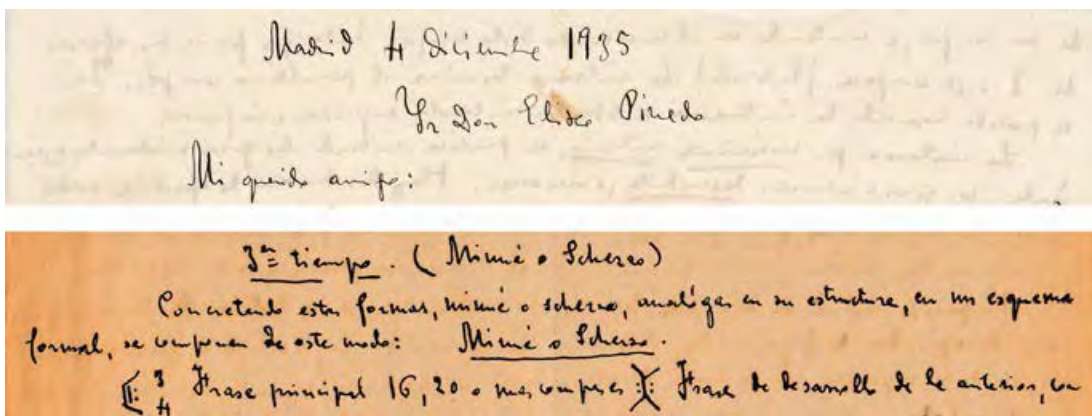 Madrid 4 diciembre 1935
Sr Don Eliseo Pinedo
Mi querido amigo:
3er tiempo. (Minué o Scherzo)
Concretando estas formas, minué o scherzo, análogas en su estructura, en un esquema
formal, se componen de este modo: Minué o Scherzo.
3/4 Frase principal 16, 20 o mas compases Frase de desarrollo de la anterior, con